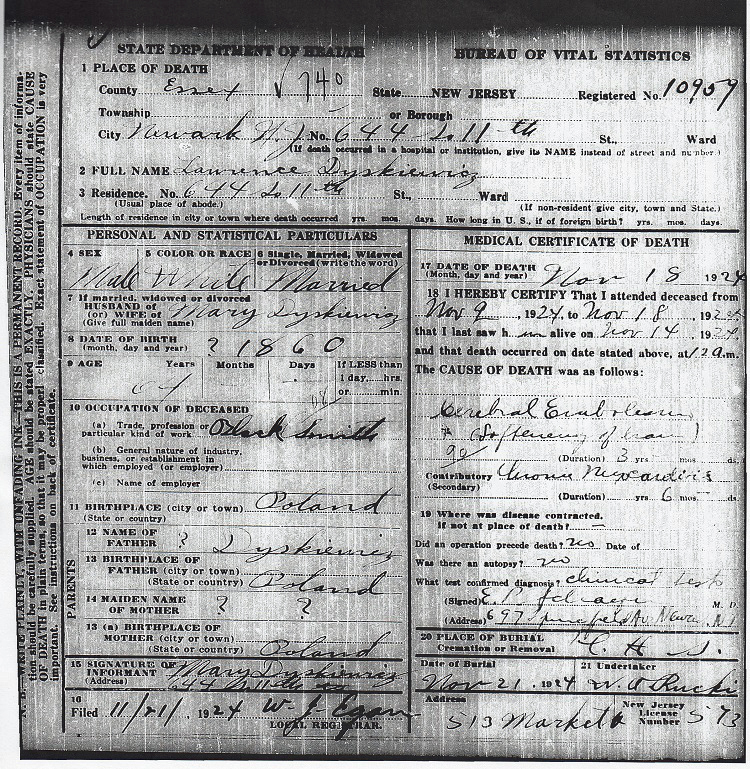 STATE DEPARTMENT OF HEALTH
BUREAU OF VITAL STATISTICS
1 PLACE OF DEATH
County Essex √ 740 State NEW JERSEY Registered No. 10959
Township or Borough
City Newark N.J. No. 644 So 11th St., Ward
(If death occurred in a hospital or institution, give its NAME instead of street and number.)
2 FULL NAME Lawrence Dyskiewiz
3 Residence. No. 644 So 11th St., Ward
(Usual place of abode.) (If non-resident give city, town and State.)
Length of residence in city or town where death occurred yrs. mos. days. How long in U. S., if of foreign birth? yrs. mos. days.
PERSONAL AND STATISTICAL PARTICULARS
4 SEX 5 COLOR OR RACE 6 Single, Married, Widowed
or Divorced (write the word)
Male White Married
7 If married, widowed or divorced
HUSBAND OF
(or) WIFE of Mary Dyskiewiz
(Give full maiden name)
8 DATE OF BIRTH
(month, day and year) ? 1860
9 AGE Years Months Days If LESS than
1 day, hrs.
or min.
64
10 OCCUPATION OF DECEASED
(a) Trade, profession or
particular kind of work Black Smith
(b) General nature of industry,
business, or establishment in
which employed (or employer)
(c) Name of employer
11 BIRTHPLACE (city or town) Poland
(State or country)
12 NAME OF
FATHER ? Dyskiewiz
13 BIRTHPLACE OF
FATHER (city or town)
(State or country) Poland
14 MAIDEN NAME
OF MOTHER ? ?
13 (a) BIRTHPLACE OF
MOTHER (city or town)
(State or country) Poland
PARENTS
15 SIGNATURE OF
INFORMANT Mary Dyskiewiz
(Address) 644 11th
16
Filed 11/21/, 1924 W. J. Egan
LOCAL REGISTRAR.
MEDICAL CERTIFICATE OF DEATH
17 DATE OF DEATH
(Month, day and year) Nov 18 1924
18 I HEREBY CERTIFY That I attended deceased from
Nov 9, 1924, to Nov 18, 1924
that I last saw h im alive on Nov 14, 1924
and that death occurred on date stated above, at 12 a m.
The CAUSE OF DEATH was as follows:
Cerebral Embolism
(Softening of brain)
(Duration) 3 yrs. mos. ds.
Contributory
(Secondary)
(Duration) yrs. 6 mos. ds.
19 Where was disease contracted.
if not at place of death? —
Did an operation precede death? no Date of
Was there an autopsy? no
What test confirmed diagnosis? clinical test
(Signed) E. M. D.
(Address) 697 Springfield Av Newark N.J
20 PLACE OF BURIAL
Cremation or Removal H. S.
Date of Burial 21 Undertaker
Nov 21, 1924
Address New Jersey
License
Number 573
513 Market
N. B.—WRITE PLAINLY, WITH UNFADING INK—THIS IS A PERMANENT RECORD. Every item of informa-
tion should be carefully supplied. AGE should be stated EXACTLY. PHYSICIANS should state CAUSE
OF DEATH in plain terms, so that it may be properly classified. Exact statement of OCCUPATION is very
important. See instructions on back of certificate.